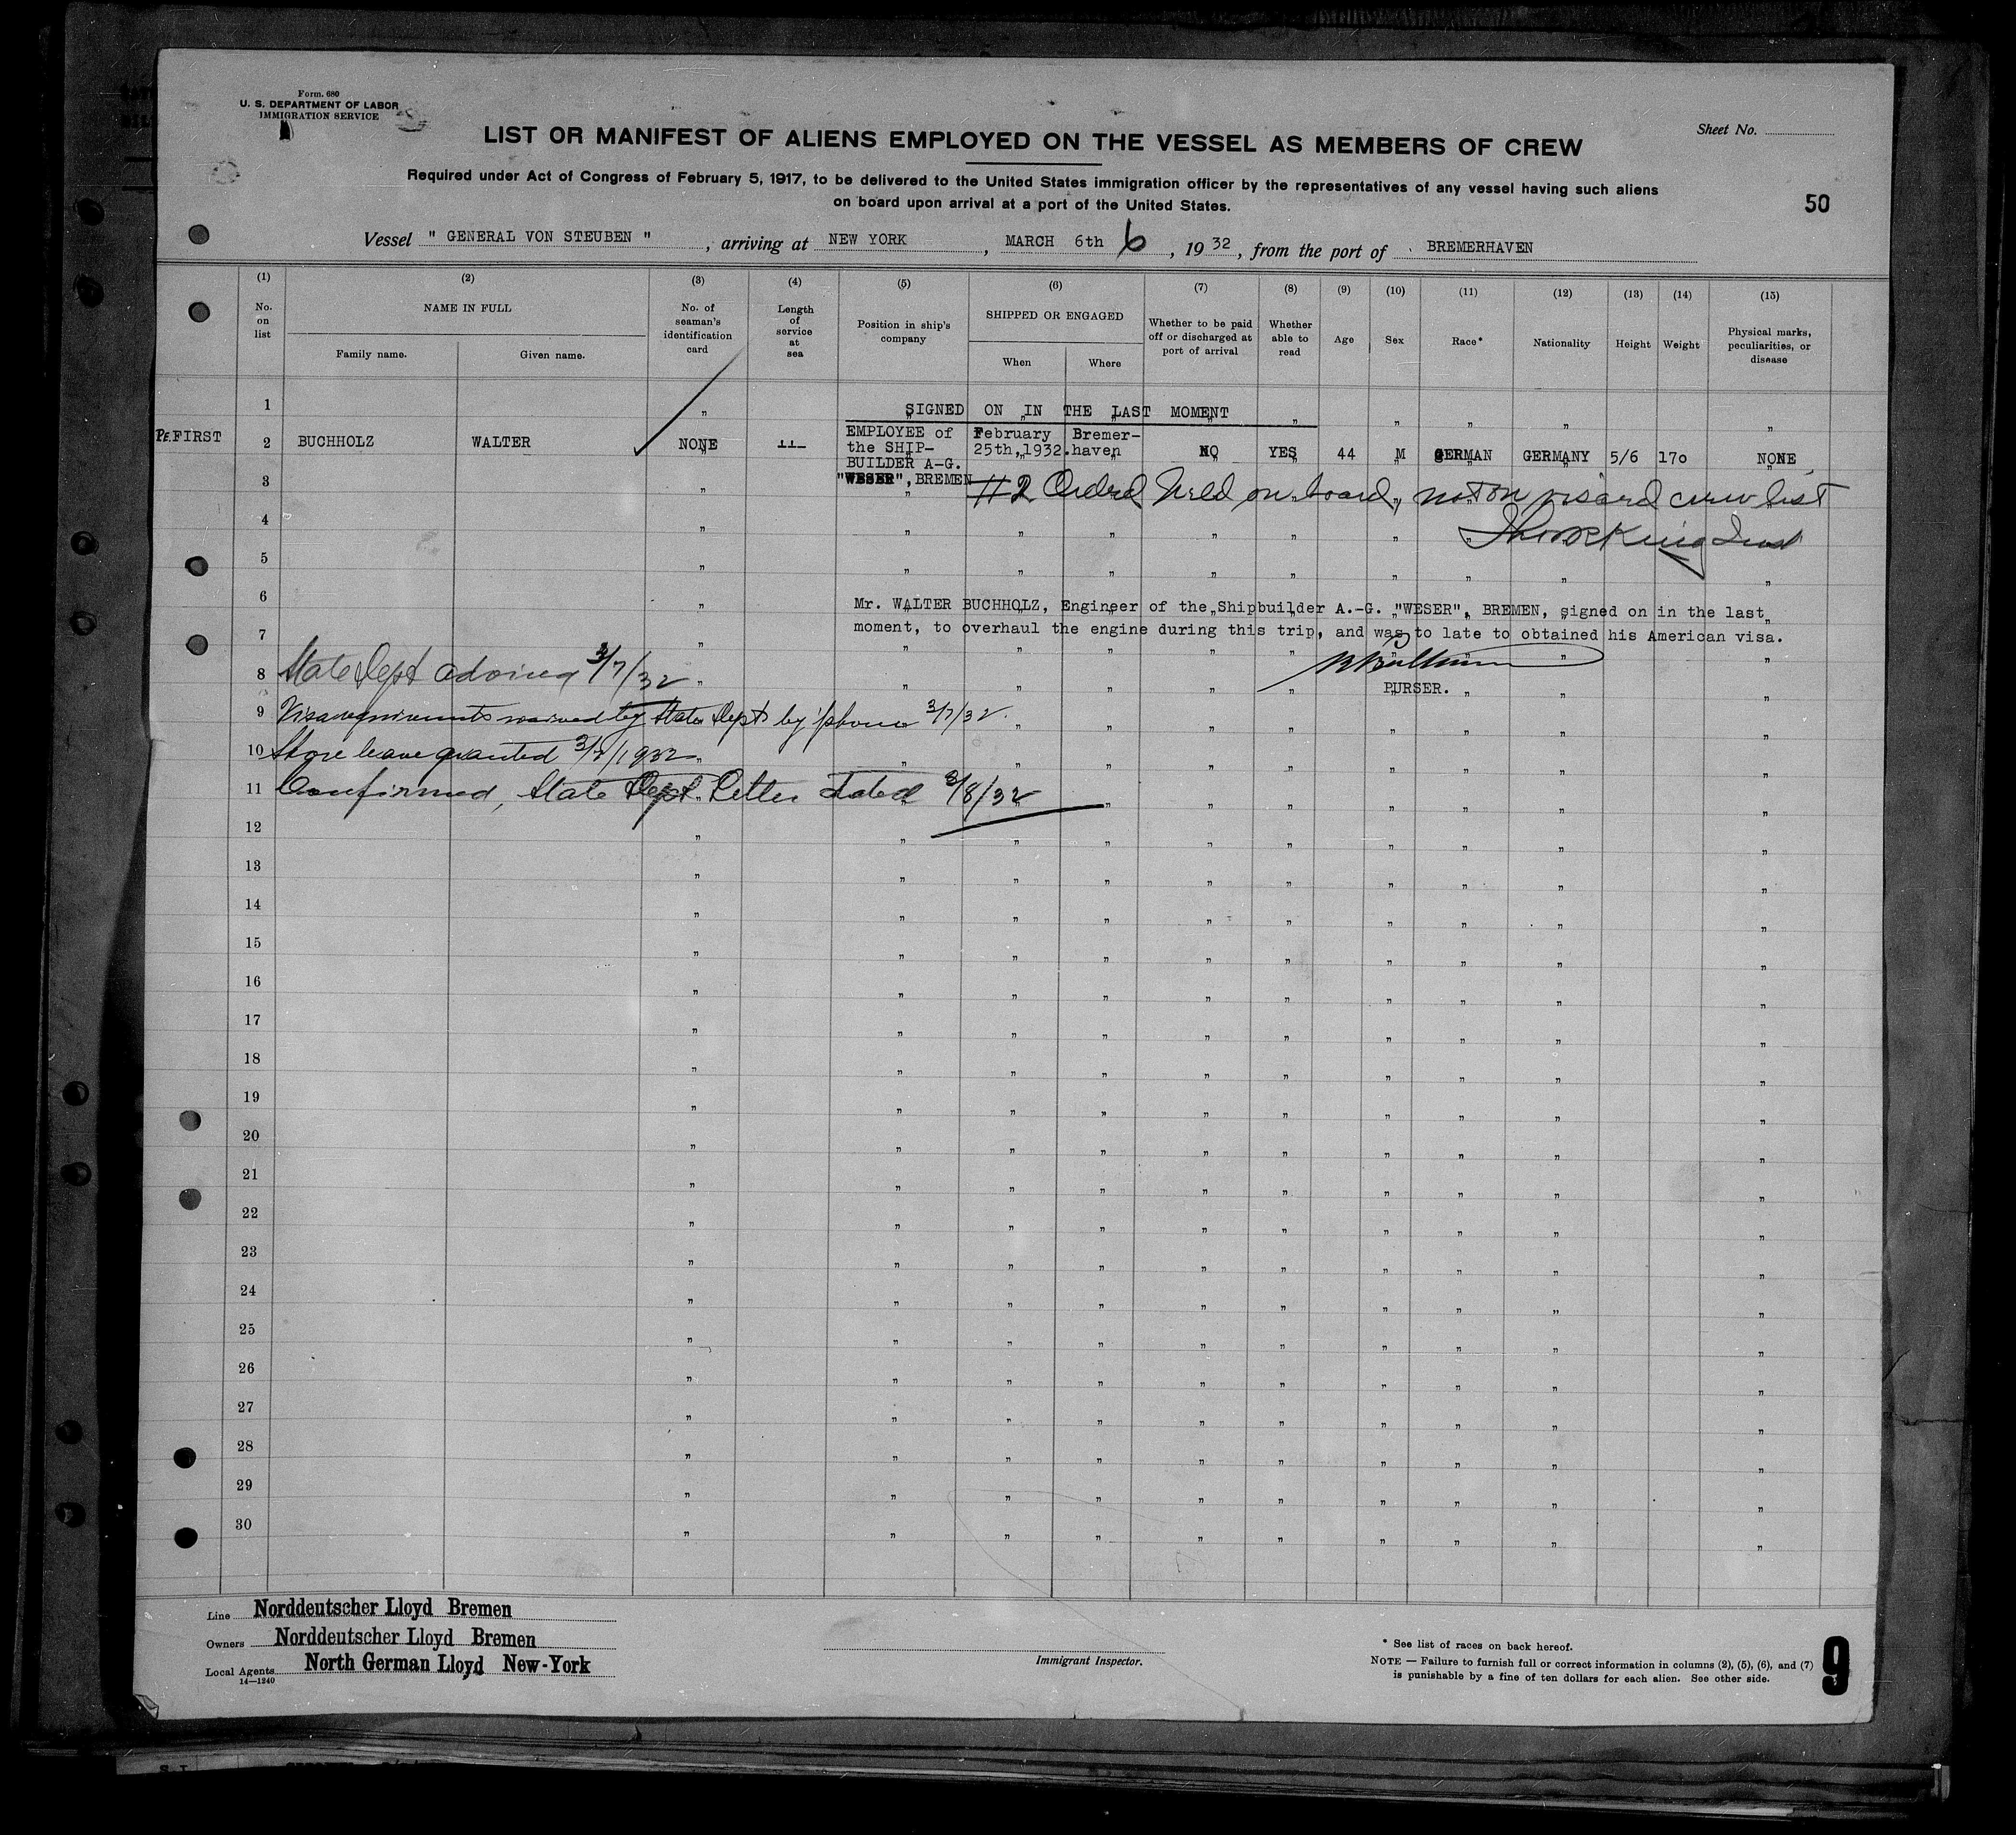 Form. 680
U. S. DEPARTMENT OF LABOR
IMMIGRATION SERVICE
Sheet No.
LIST OR MANIFEST OF ALIENS EMPLOYED ON THE VESSEL AS MEMBERS OF CREW
Required under Act of Congress of February 5, 1917, to be delivered to the United States immigration officer by the representatives of any vessel having such aliens
on board upon arrival at a port of the United States.
50
Vessel " GENERAL VON STEUBEN " , arriving at NEW YORK , MARCH 6th 6 , 19 32 , from the port of BREMERHAVEN
(1) (2) (3) (4) (5) (6) (7) (8) (9) (10) (11) (12) (13) (14) (15)
No. on list
NAME IN FULL
Family name. Given name.
No. of seaman's identification card
Length of service at sea
Position in ship's company
SHIPPED OR ENGAGED
When Where
Whether to be paid off or discharged at port of arrival
Whether able to read
Age
Sex
Race*
Nationality
Height
Weight
Physical marks, peculiarities, or disease
1 SIGNED ON IN THE LAST MOMENT
FIRST 2 BUCHHOLZ WALTER NONE EMPLOYEE of February Bremer- NO YES 44 M GERMAN GERMANY 5/6 170 NONE
the SHIP- 25th, 1932. haven
BUILDER A-G.
"WESER", BREMEN
3 #2 Ordered held on board, not on visaed crew list
4 King Insp
5
6 Mr. WALTER BUCHHOLZ, Engineer of the Shipbuilder A.-G. "WESER", BREMEN, signed on in the last
7 moment, to overhaul the engine during this trip, and was to late to obtained his American visa.
8 State Dept advised 3/7/32
PURSER.
9 Visa requirements waived by State Dept by 'phone 3/7/32.
10 Shore leave granted 3/7/1932
11 Confirmed, State Dept. Letter dated 3/8/32
12
13
14
15
16
17
18
19
20
21
22
23
24
25
26
27
28
29
30
Line Norddeutscher Lloyd Bremen
Owners Norddeutscher Lloyd Bremen
Local Agents North German Lloyd New-York
14—1240
Immigrant Inspector.
* See list of races on back hereof.
NOTE — Failure to furnish full or correct information in columns (2), (5), (6), and (7)
is punishable by a fine of ten dollars for each alien. See other side.
9